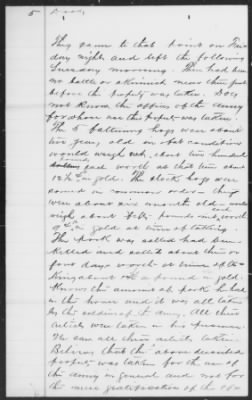 5
They came to that point on Tues
day night and left the following
Tuesday morning. There had been
no battle or skirmish near this port
before the property was taken. Does
not know the officers of the army
for whose use the property was taken.
The 5 fattening hogs were about
two years old in fat condition
would weigh about two hundred
pounds each worth at that time about
12½ in gold. The stock hogs were
some in common order - they
were about six months old would
weigh about pounds each worth
in gold at time of taking.
The pork was salted had been
killed and salted about three or
four days worth at time of ta
king about a pound in gold.
Knows the amount of pork he had
in the house and it was all taken
by the soldiers of army. All these
articles were taken in his presence.
He saw all these articles taken.
Believes that the above described
property was taken for the use of
the army in general and not for
the mere gratification of the